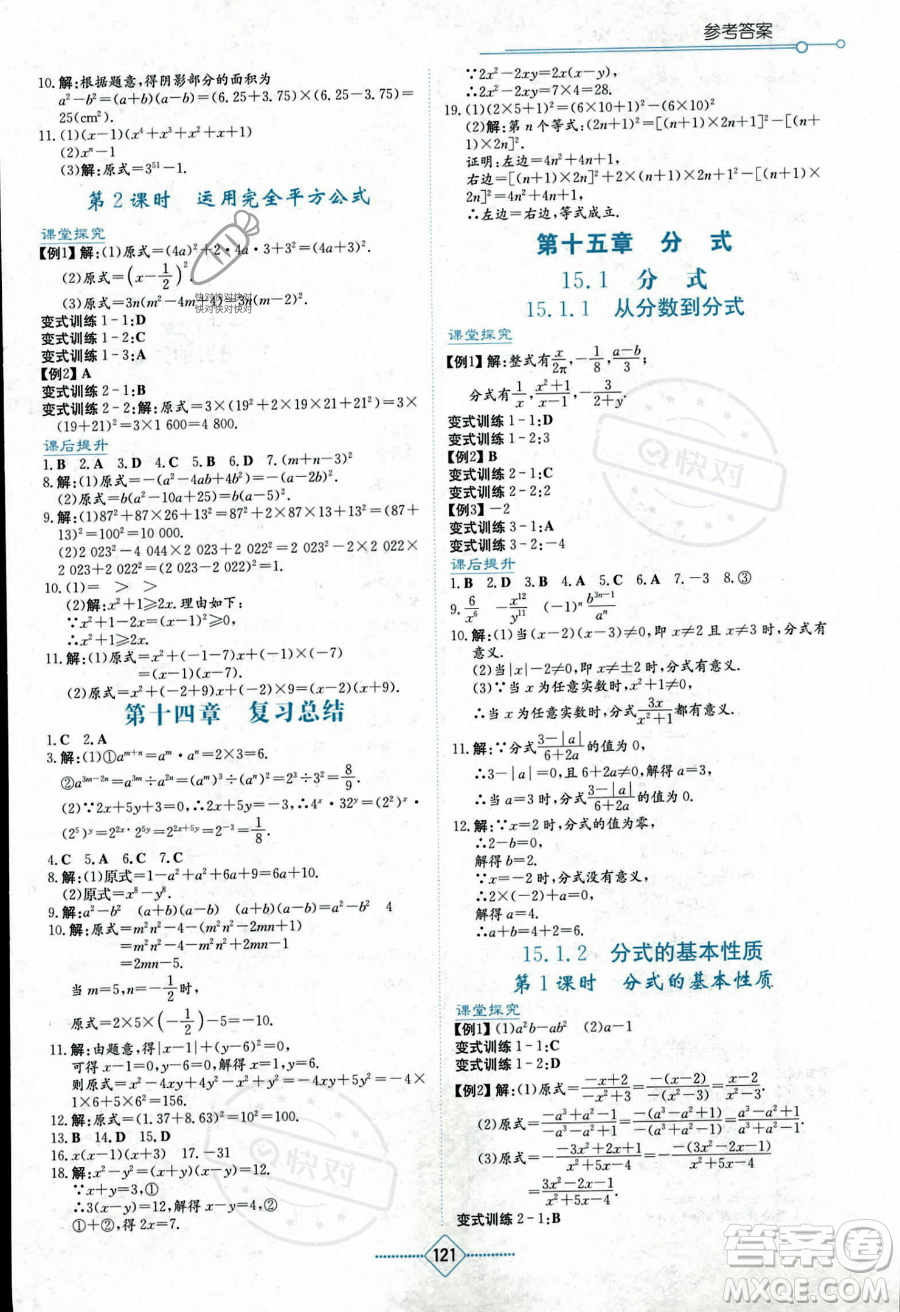 参考答案
10. 解:根据题意,得阴影部分的面积为
a²-b²=(a+b)(a-b)=(6.25+3.75)×(6.25-3.75)=
25(cm²).
11. (1)(x-1)(x⁴+x³+x²+x+1)
(2)xⁿ-1
(3)解:原式=3⁵¹-1.
第2课时 运用完全平方公式
课堂探究
【例1】解:(1)原式=(4a)²+2·4a·3+3²=(4a+3)².
(2)原式=(x-1/2)².
(3)原式=3n(m²-4m+4)=3n(m-2)².
变式训练1-1:D
变式训练1-2:C
【例2】A
变式训练2-1:B
变式训练2-2:解:原式=3×(19²+2×19×21+21²)=3×
(19+21)²=3×1 600=4 800.
课后提升
1. B 2. A 3. D 4. C 5. B 6. D 7. (m+n-3)²
8. 解:(1)原式=-(a²-4ab+4b²)=-(a-2b)².
(2)原式=b(a²-10a+25)=b(a-5)².
9. 解:(1)87²+87×26+13²=87²+2×87×13+13²=(87+
13)²=100²=10 000.
(2)2 023²-4 044×2 023+2 022²=2 023²-2×2 022×
2 023+2 022²=(2 023-2 022)²=1.
10. (1)= > >
(2)解:x²+1≥2x. 理由如下:
∵x²+1-2x=(x-1)²≥0,
∴x²+1≥2x.
11. 解:(1)原式=x²+(-1-3)x+(-1)×(-3)
=(x-1)(x-3).
(2)原式=(a-2+9)(a-2-1)=(a+7)(a-3).
第十四章 复习总结
1. C 2. A
3. 解:(1)①aᵐ⁺ⁿ=aᵐ·aⁿ=2×3=6.
②a³ᵐ⁻²ⁿ=a³ᵐ÷a²ⁿ=(aᵐ)³÷(aⁿ)²=2³÷3²=8/9.
(2)∵2x+5y+3=0,∴2x+5y=-3,∴4ˣ·32ʸ=(2²)ˣ·
(2⁵)ʸ=2²ˣ·2⁵ʸ=2²ˣ⁺⁵ʸ=2⁻³=1/8.
4. C 5. A 6. C 7. C
8. 解:(1)原式=1-a²+a²+6a+9=6a+10.
(2)原式=x⁸-y⁸.
9. 解:a²-b² (a+b)(a-b) (a+b)(a-b)=a²-b² 4
10. 解:原式=m²n²-4-(m²n²-2mn+1)
=m²n²-4-m²n²+2mn-1
=2mn-5.
当m=5,n=-1/2时,
原式=2×5×(-1/2)-5=-10.
11. 解:由题意,得|x-1|+(y-6)²=0,
可得x-1=0,y-6=0,解得x=1,y=6.
则原式=x²-4xy+4y²-x²+4xy=4y²=4×6²=... 
1×6+5×6²=156.
12. 解:原式=(1.37+8.63)²=10²=100.
13. B 14. D 15. D
16. x(x-3)(x+3) 17. -31
18. 解:x²-y²=(x+y)(x-y)=12.
∵x+y=3,①
∴3(x-y)=12,解得x-y=4.②
①+②,得2x=7.
∵2x²-2xy=2x(x-y),
∴2x²-2xy=7×4=28.
19. (1)(2×5+1)²=(6×10+1)²-(6×10)²
(2)解:第n个等式:(2n+1)²=[(n+1)×2n+1]²-[(n+
1)×2n]².
证明:左边=4n²+4n+1,
右边=[(n+1)×2n]²+2(n+1)×2n+1-[(n+1)×
2n]²=4n²+4n+1,
∴左边=右边,等式成立.
第十五章 分 式
15.1 分 式
15.1.1 从分数到分式
课堂探究
【例1】解:整式有x/2π,-1/8,a/3;
分式有1/x,(x²+1)/(x-1),-3/(2+y).
变式训练1-1:D
变式训练1-2:3
【例2】B
变式训练2-1:C
变式训练2-2:2
【例3】-2
变式训练3-1:A
变式训练3-2:-4
课后提升
1. B 2. D 3. C 4. B 5. D 6. A 7. -3 8. ③
9. 6/x⁶ -x¹²/y¹¹ (-1)ⁿb³ⁿ⁻¹/aⁿ
10. 解:(1)当(x-2)(x-3)≠0,即x≠2且x≠3时,分式有
意义.
(2)当|x|-2≠0,即x≠±2时,分式有意义.
(3)当x为任意实数时,x²+1≠0,
∴当x为任意实数时,分式3x/(x²+1)都有意义.
11. 解:∵分式(3-|a|)/(6+2a)的值为0,
∴3-|a|=0且6+2a≠0,解得a=3,
∴当a=3时,分式(3-|a|)/(6+2a)的值为0.
12. 解:∵x=2时,分式的值为零,
∴2-b=0,
解得b=2.
∵x=-2时,分式没有意义,
∴2×(-2)+a=0,
解得a=4.
∴a+b=4+2=6.
15.1.2 分式的基本性质
第1课时 分式的基本性质
课堂探究
【例1】(1)a²b-ab² (2)a-1
变式训练1-1:C
变式训练1-2:D
【例2】解:(1)原式=(-x+2)/(-x²+3)=-(x-2)/-(x²-3)=(x-2)/(x²-3).
(2)原式=(-a³+a²-1)/(-a²-a³+1)=-(a³-a²+1)/-(a³+a²-1)=
(3)原式=-(-3x²+2x+1)/(x²+5x-4)=
(3x²-2x-1)/(x²+5x-4).
变式训练2-1:B
121
快对
快对
答案圈
MXQE.COM